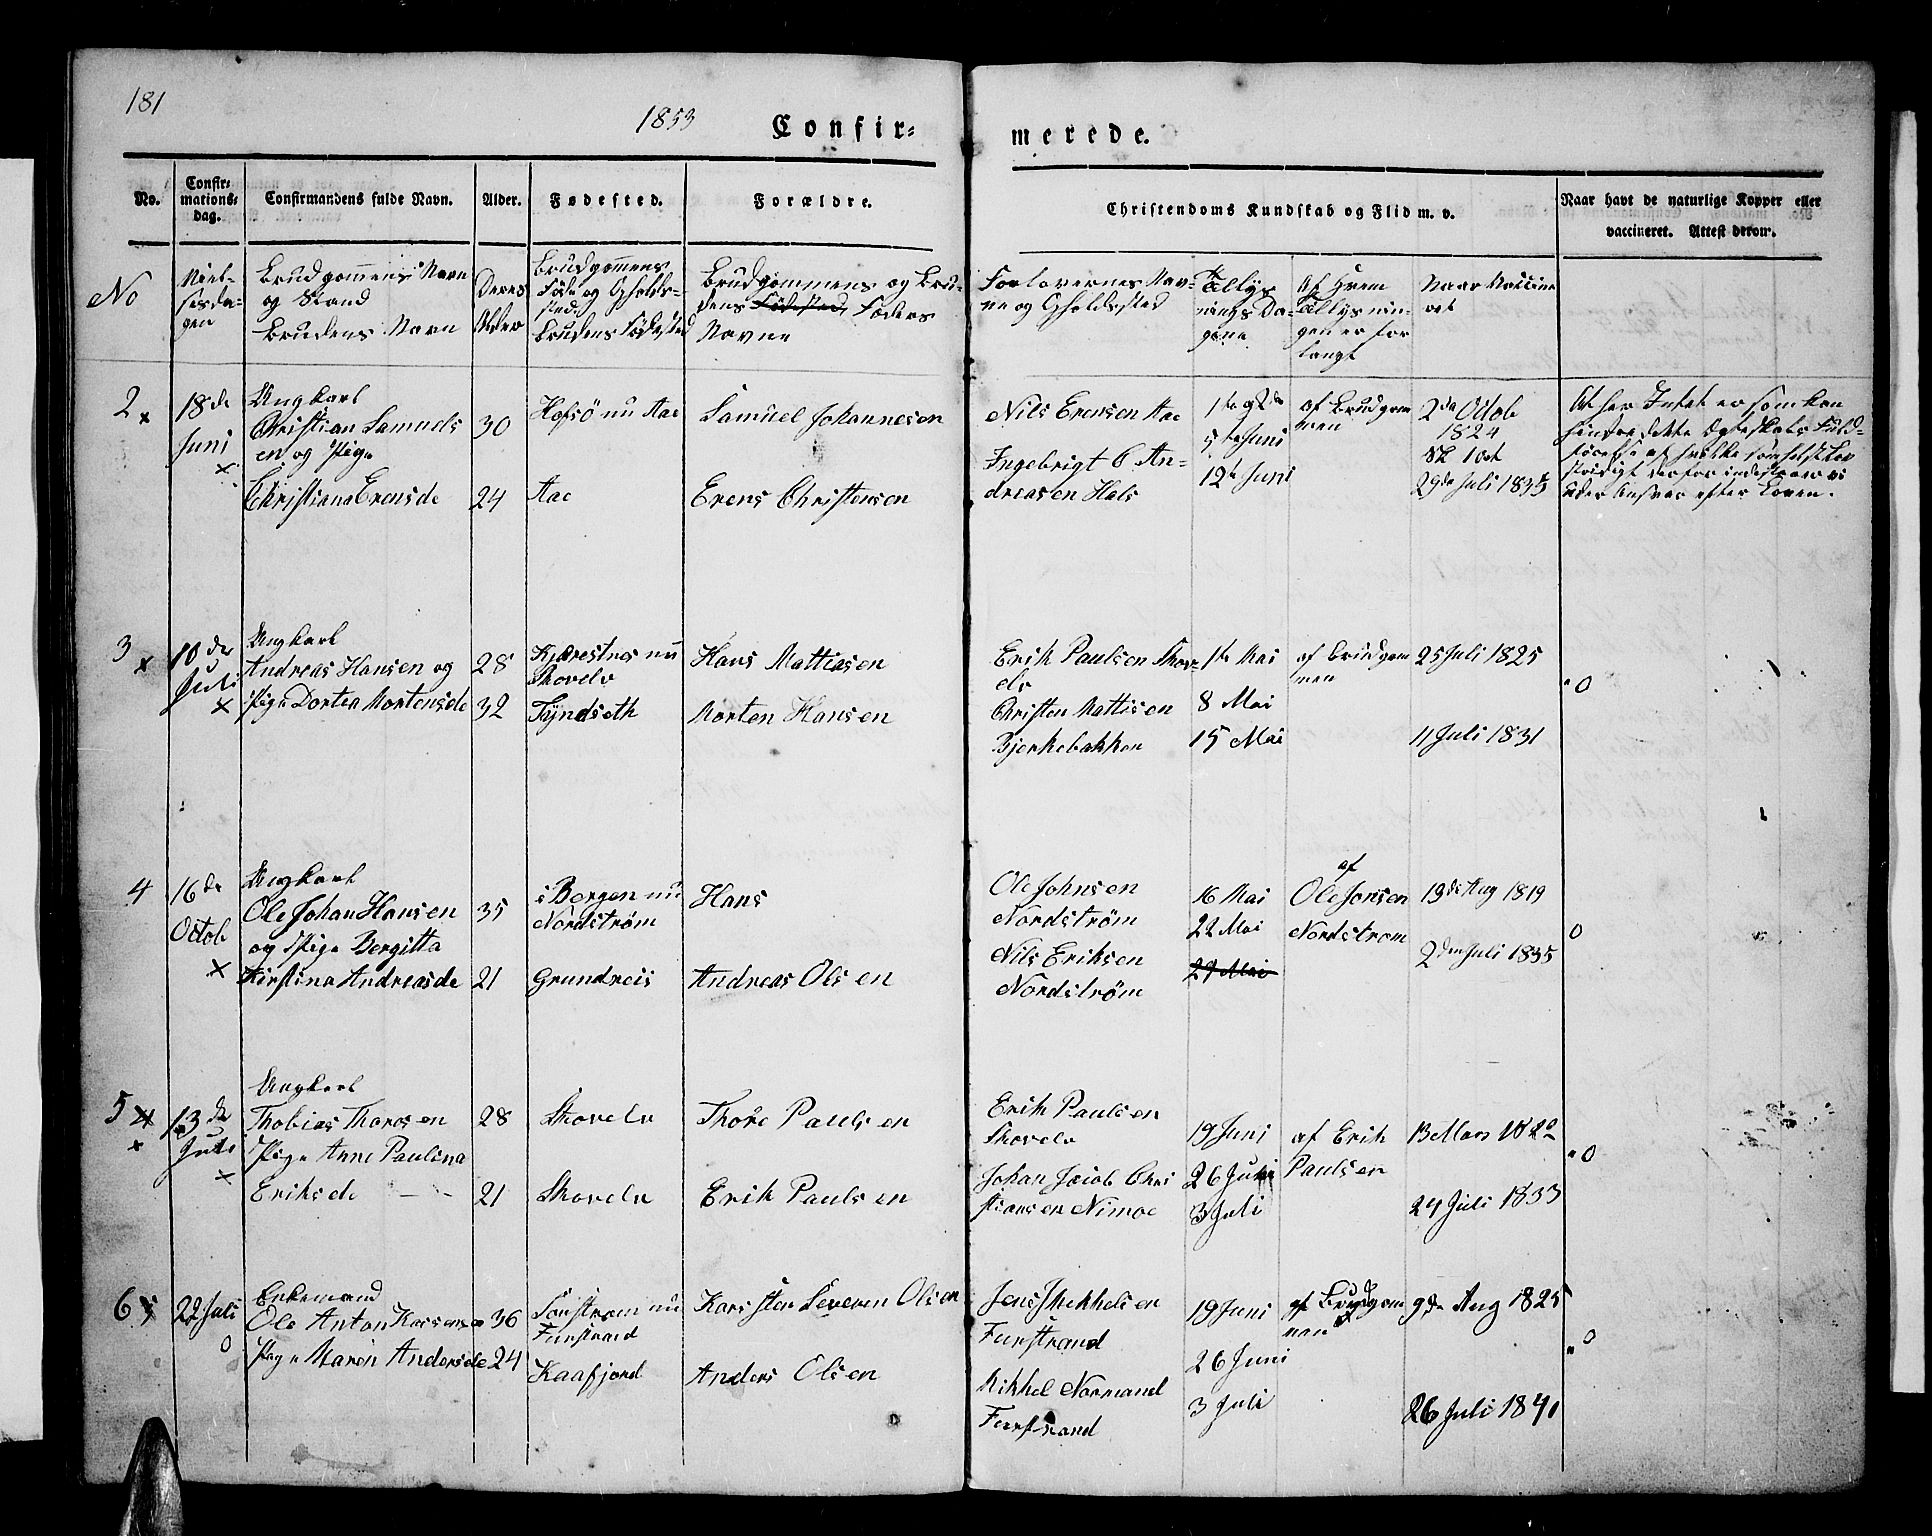 181
1853 Confir=
merede.
No.
Confir=
mations=
dag.
Confirmandens fulde Navn.
Alder.
Fødested.
Forældre.
Christendoms Kundskab og Flid m. v.
Naar havt de naturlige Kopper eller
vaccineret. Attest derom.
No
Viel-
sesda-
gen
Brudgommens Navn
og Stand
Brudens Navn
Deres
Alder
Brudgommens
Føde og Opholds-
sted
Brudens Fødested
Brudgommens og Bru-
dens Fødested, Faders
Navne
Forlovernes Nav-
ne og Opholdssted
Tillys
nings Da-
gene
Af Hvem
Tillysnin-
gen er for
langt
Naar Vaccine
ret
2 x
18de
Juni
x
Ungkarl
Christian Samuels
en og Pige
Christiana Erensde
30
24
Hofsö nu Aae
Aae
Samuel Johannesen
Erens Christensen
Nils Erensen Aae
Ingebrigt C An-
dreasen Hals
1te og 2de
5te Juni
12te Juni
af Brudgom
men
2den Octob
1824
29de Juli 1835
At her Intet er som kan
hindre dette Ægteskabs Fuld-
under Ansvar efter Loven.
3 x
10de
Juli
x
Ungkarl
Andreas Hansen og
Pige Dortea Mortensde
28
32
Kjærestnes nu
Skovelv
Tyndseth
Hans Mattiesen
Morten Hansen
Erik Paulsen Skov-
elv
Christen Mattisen
Bjerkebakken
1te Mai
8 Mai
15 Mai
af Brudgom
men
25 Juli 1825
11 Juli 1831
" 0
4
16de
Octob
x
Ungkarl
Ole Johan Hansen
og Pige Bergitta
Kirstina Andreasde
35
21
i Bergen nu
Nordstrøm
Grundreis
Hans
Andreas Olsen
Ole Johnsen
Nordstrøm
Nils Eriksen
Nordstrøm
16 Mai
22 Mai
29 Mai
af
Ole Jonsen
Nordstrom
19de Aug 1819
2den Juli 1835
0
5 x
x
13de
Juli
x
Ungkarl
Thobias Thorosen
Pige Anne Paulina
Eriksde
28
21
Skovelv
Skovelv
Thore Paulsen
Erik Paulsen
Erik Paulsen
Skovelv
Johan Jacob Chri
stiansen Nimoe
19 Juni
26 Juni
3 Juli
af Erik
Paulsen
13 Mars 1822
24 Juli 1833
" 0
6
22 Juli
0
Enkemand
Ole Anton Karsens
Pige Maren Andersde
36
24
Sørstrom nu
Furstrand
Kaafjord
Karssten Severen Olsen
Anders Olsen
Jens Mikkelsen
Furstrand
Mikkel Normand
Furstrand
19 Juni
26 Juni
3 Juli
af Brudgom
men
9de Aug 1825
26 Juli 1841
" 0